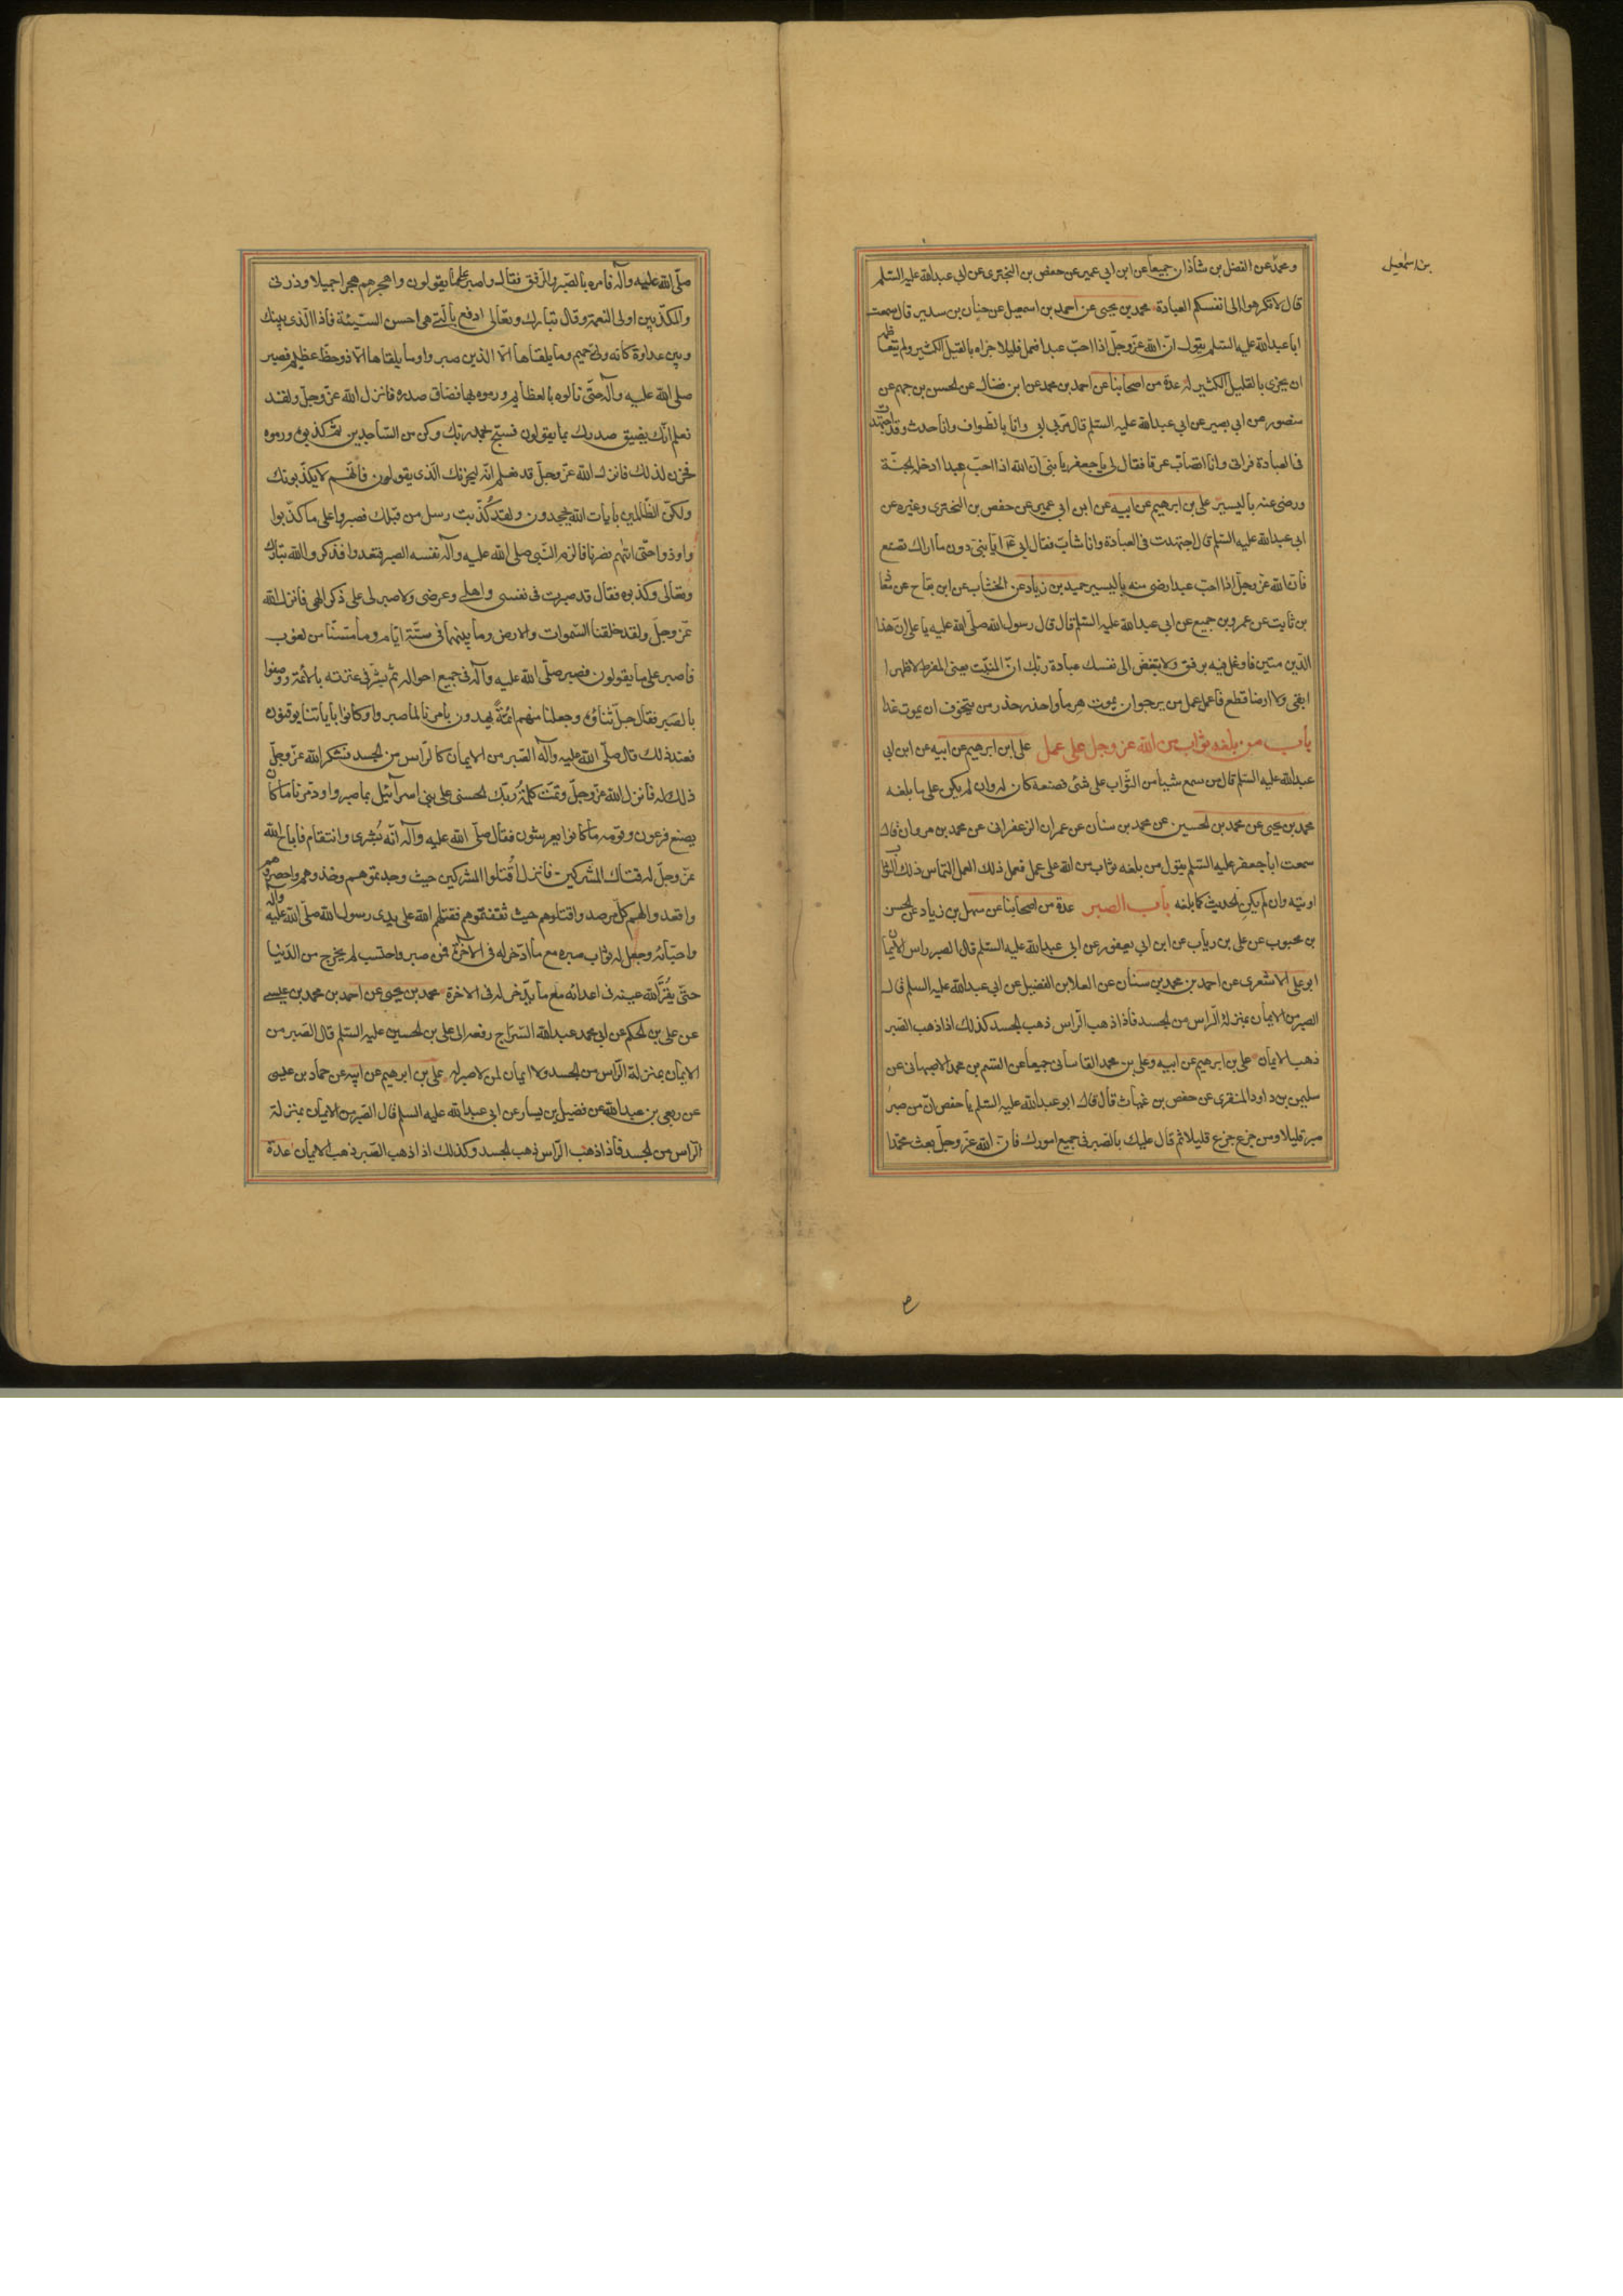 بن اسمعيل
ومحمد عن الفضل بن شاذان جميعا عن ابن ابي عمير عن حفص بن البختري عن ابي عبدالله عليه السلم
قال لا تكرهوا الى انفسكم العبادة محمد بن يحيى عن احمد بن اسمعيل عن حنان بن سدير قال سمعت
ابا عبدالله عليه السلم يقول ان الله عز وجل اذا احب عبدا فعمل قليلا جزاه بالقليل الكثير ولم يتعاظمه
ان يجزي بالقليل الكثير له عدة من اصحابنا عن احمد بن محمد عن ابن فضال عن الحسن بن جهم عن
منصور عن ابي بصير عن ابي عبدالله عليه السلم قال مر بي ابي وانا بالطواف وانا حدث وقد اجتهدت
في العبادة فراني وانا اتصاب عرقا فقال لي يا جعفر يا بني ان الله اذا احب عبدا ادخله الجنة
ورضي عنه باليسير علي بن ابرهيم عن ابيه عن ابن ابي عمير عن حفص بن البختري وغيره عن
ابي عبدالله عليه السلم قال اجتهدت في العبادة وانا شاب فقال لي ابي يا بني دون ما اراك تصنع
فان الله عز وجل اذا احب عبدا رضي منه باليسير حميد بن زياد عن الخشاب عن ابن بقاح عن معاذ
بن ثابت عن عمرو بن جميع عن ابي عبدالله عليه السلم قال قال رسول الله صلى الله عليه يا علي ان هذا
الدين متين فاوغل فيه برفق ولا تبغض الى نفسك عبادة ربك ان المنبت يعني المفرط لا ظهرا
ابقى ولا ارضا قطع فاعمل عمل من يرجو ان يموت هرما واحذر حذر من يتخوف ان يموت غدا
باب من بلغه ثواب من الله عز وجل على عمل علي ابن ابرهيم عن ابيه عن ابن ابي
عبدالله عليه السلم قال من سمع شيئا من الثواب على شئ فصنعه كان له وان لم يكن على ما بلغه
محمد بن يحيى عن محمد بن الحسين عن محمد بن سنان عن عمران الزعفراني عن محمد بن مروان قال
سمعت ابا جعفر عليه السلم يقول من بلغه ثواب من الله على عمل فعمل ذلك العمل التماس ذلك الثواب
اوتيه وان لم يكن الحديث كما بلغه باب الصبر عدة من اصحابنا عن سهل بن زياد عن الحسن
بن محبوب عن علي بن رياب عن ابن ابي يعفور عن ابي عبدالله عليه السلم قال الصبر راس الايمان
ابو علي الاشعري عن احمد بن محمد بن سنان عن العلا بن الفضيل عن ابي عبدالله عليه السلم قال
الصبر من الايمان بمنزلة الراس من الجسد فاذا ذهب الراس ذهب الجسد كذلك اذا ذهب الصبر
ذهب الايمان علي بن ابرهيم عن ابيه وعلي بن محمد القاساني جميعا عن القسم بن محمد الاصبهاني عن
سليمن بن داود المنقري عن حفص بن غياث قال قال ابو عبدالله عليه السلم يا حفص ان من صبر
صبر قليلا ومن جزع جزع قليلا ثم قال عليك بالصبر في جميع امورك فان الله عز وجل بعث محمدا
صلى الله عليه وآله فامره بالصبر والرفق فقال واصبر على ما يقولون واهجرهم هجرا جميلا وذرني
والمكذبين اولي النعمة وقال تبارك وتعالى ادفع بالتي هي احسن السيئة فاذا الذي بينك
وبين عداوة كانه ولي حميم وما يلقاها الا الذين صبروا وما يلقاها الا ذو حظ عظيم فصبر
صلى الله عليه وآله حتى نالوه بالعظايم ورموه بها فضاق صدره فانزل الله عز وجل ولقد
نعلم انك يضيق صدرك بما يقولون فسبح بحمد ربك وكن من الساجدين ثم كذبوه ورموه
فحزن لذلك فانزل الله عز وجل قد نعلم انه ليحزنك الذي يقولون فانهم لا يكذبونك
ولكن الظالمين بايات الله يجحدون ولقد كذبت رسل من قبلك فصبروا على ما كذبوا
واوذوا حتى اتيهم نصرنا فالزم النبي صلى الله عليه وآله نفسه الصبر فتعدوا فذكر والله تبارك
وتعالى وكذبوه فقال قد صبرت في نفسي واهلي وعرضي ولا صبر لي على ذكر الهي فانزل الله
عز وجل ولقد خلقنا السموات والارض وما بينهما في ستة ايام وما مسنا من لغوب
فاصبر على ما يقولون فصبر صلى الله عليه وآله في جميع احواله ثم بشر في عترته بالائمة ووصفوا
بالصبر فقال جل ثناؤه وجعلنا منهم ائمة يهدون بامرنا لما صبروا وكانوا باياتنا يوقنون
فعند ذلك قال صلى الله عليه وآله الصبر من الايمان كالراس من الجسد فشكر الله عز وجل
ذلك له فانزل الله عز وجل وتمت كلمة ربك الحسنى على بني اسرآئيل بما صبروا ودمرنا ما كان
يصنع فرعون وقومه ما كانوا يعرشون فقال صلى الله عليه وآله انه بشرى وانتقام فاباح الله
عز وجل له قتال المشركين فانزل اقتلوا المشركين حيث وجدتموهم وخذوهم واحصروهم
واقعدوا لهم كل مرصد واقتلوهم حيث ثقفتموهم فقتلهم الله على يدي رسول الله صلى الله عليه وآله
واحبائه وجعل له ثواب صبره مع ما ادخر له في الآخرة فمن صبر واحتسب لم يخرج من الدنيا
حتى يقر الله عينه في اعدائه مع ما يدخر له في الاخرة محمد بن يحيى عن احمد بن محمد بن عيسى
عن علي بن الحكم عن ابي محمد عبدالله السراج رفعه الى علي بن الحسين عليه السلم قال الصبر من
الايمان بمنزلة الراس من الجسد ولا ايمان لمن لا صبر له علي بن ابرهيم عن ابيه عن حماد بن عيسى
عن ربعي بن عبدالله عن فضيل بن يسار عن ابي عبدالله عليه السلم قال الصبر من الايمان بمنزلة
الراس من الجسد فاذا ذهب الراس ذهب الجسد وكذلك اذا ذهب الصبر ذهب الايمان عدة